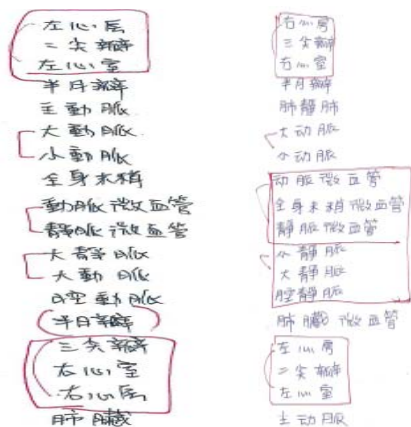 左心房
二尖瓣
左心室
半月瓣
主動脈
大動脈
小動脈
全身末梢
動脈微血管
靜脈微血管
大靜脈
大動脈
腔動脈
半月瓣
三尖瓣
右心室
右心房
肺臟
右心房
三尖瓣
右心室
半月瓣
肺靜肺
大动脈
小动脈
动脈微血管
全身末梢微血管
靜脈微血管
小靜脈
大靜脈
腔靜脈
肺臟微血管
左心房
二尖瓣
左心室
主动脈